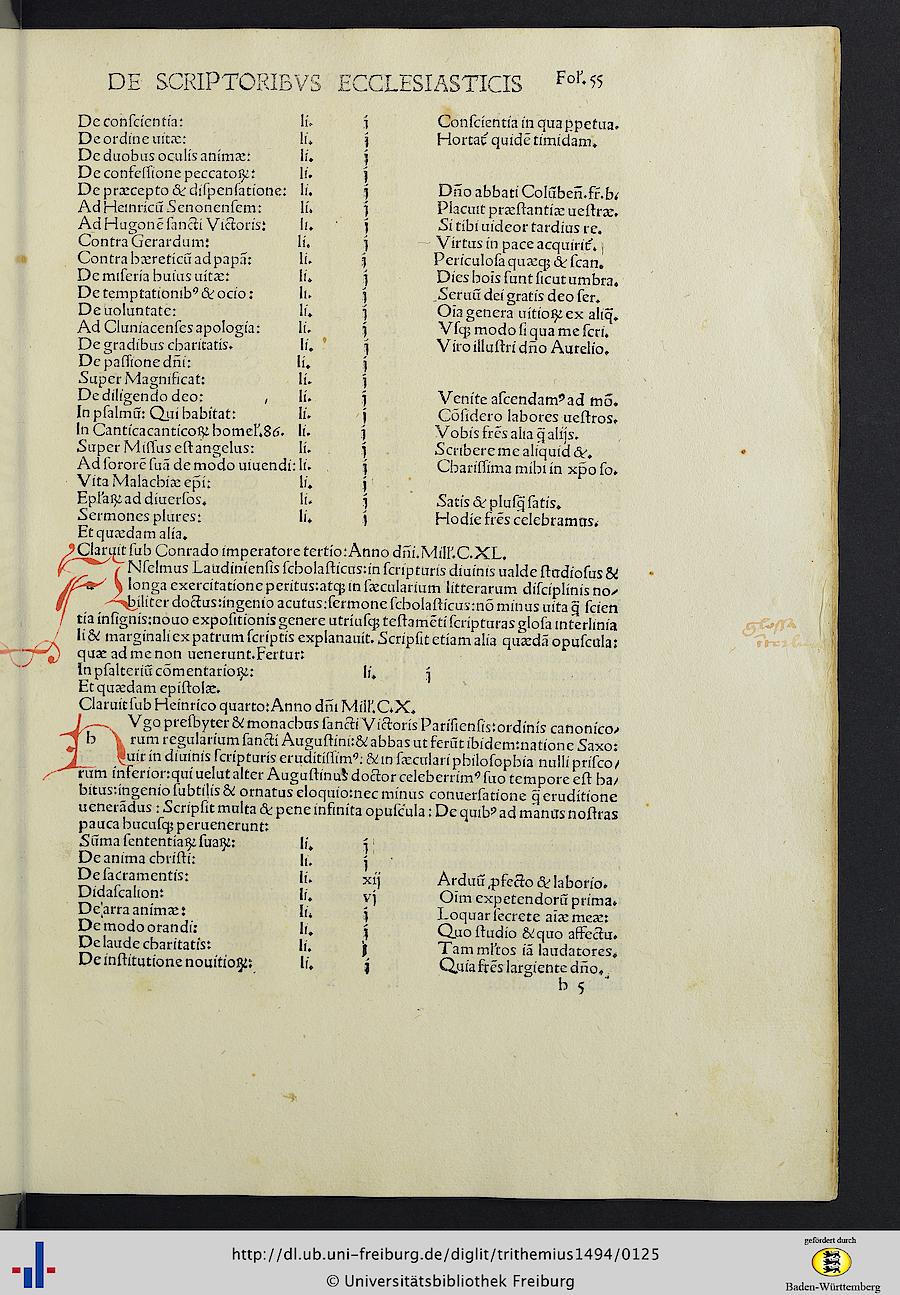 DE SCRIPTORIBVS ECCLESIASTICIS Fol'. 55
De conscientia: li. j Conscientia in qua ꝑpetua.
De ordine uitæ: li. j Hortat᷑ quidē timidam.
De duobus oculis animæ: li. j
De confessione peccatoꝝ: li. j
De præcepto & dispensatione: li. j Dño abbati Colūbeñ. fr̄. b;
Ad Heinricū Senonensem: li. j Placuit præstantiæ uestræ.
Ad Hugonē sancti Victoris: li. j Si tibi uideor tardius re.
Contra Gerardum: li. j Virtus in pace acquirit᷑.
Contra hæreticū ad papā: li. j Periculosa quæqꝫ & scan.
De miseria huius uitæ: li. j Dies hois sunt sicut umbra.
De temptationibꝰ & ocio: li. j Seruū dei gratis deo ser.
De uoluntate: li. j Oīa genera uitioꝝ ex aliq̄.
Ad Cluniacenses apologia: li. j Vsqꝫ modo si qua me scri.
De gradibus charitatis. li. j Viro illustri dño Aurelio.
De passione dñi: li. j
Super Magnificat: li. j
De diligendo deo: li. j Venite ascendamꝰ ad mō.
In psalmū: Qui habitat: li. j Cōsidero labores uestros.
In Cantica canticoꝝ homel'. 86. li. j Vobis frēs alia q̄ alijs.
Super Missus est angelus: li. j Scribere me aliquid &.
Ad sororē suā de modo uiuendi: li. j Charissima mihi in xp̄o so.
Vita Malachiæ ep̄i: li. j
Epl'aꝝ ad diuersos. li. j Satis & plusq̄ satis.
Sermones plures: li. j Hodie frēs celebramus.
Et quædam alia.
Claruit sub Conrado imperatore tertio: Anno dñi. Mill'. C. XL.
a Nselmus Laudiniensis scholasticus: in scripturis diuinis ualde studiosus &
longa exercitatione peritus: atqꝫ in sæcularium litterarum disciplinis no/
biliter doctus: ingenio acutus: sermone scholasticus: nō minus uita q̄ scien
tia insignis: nouo expositionis genere utriusqꝫ testamēti scripturas glosa interlinia
li & marginali ex patrum scriptis explanauit. Scripsit etiam alia quædā opuscula:
quæ ad me non uenerunt. Fertur:
In psalteriū cōmentarioꝝ: li. j
Et quædam epistolæ.
Claruit sub Heinrico quarto: Anno dñi Mill'. C. X.
h Vgo presbyter & monachus sancti Victoris Parisiensis: ordinis canonico/
rum regularium sancti Augustini: & abbas ut ferūt ibidem: natione Saxo:
uir in diuinis scripturis eruditissimꝰ: & in sæculari philosophia nulli prisco/
rum inferior: qui uelut alter Augustinus doctor celeberrimꝰ suo tempore est ha/
bitus: ingenio subtilis & ornatus eloquio: nec minus conuersatione q̄ eruditione
uenerādus: Scripsit multa & pene infinita opuscula: De quibꝰ ad manus nostras
pauca hucusqꝫ peruenerunt:
Sūma sententiaꝝ suaꝝ: li. j
De anima christi: li. j
De sacramentis: li. xij Arduū ꝓfecto & laborio.
Didascalion: li. vj Oīm expetendorū prima.
De arra animæ: li. j Loquar secrete aīæ meæ:
De modo orandi: li. j Quo studio & quo affectu.
De laude charitatis: li. j Tam ml'tos iā laudatores.
De institutione nouitioꝝ: li. j Quia frēs largiente dño.
h 5
glossa
http://dl.ub.uni-freiburg.de/diglit/trithemius1494/0125
© Universitätsbibliothek Freiburg
gefördert durch
Baden-Württemberg